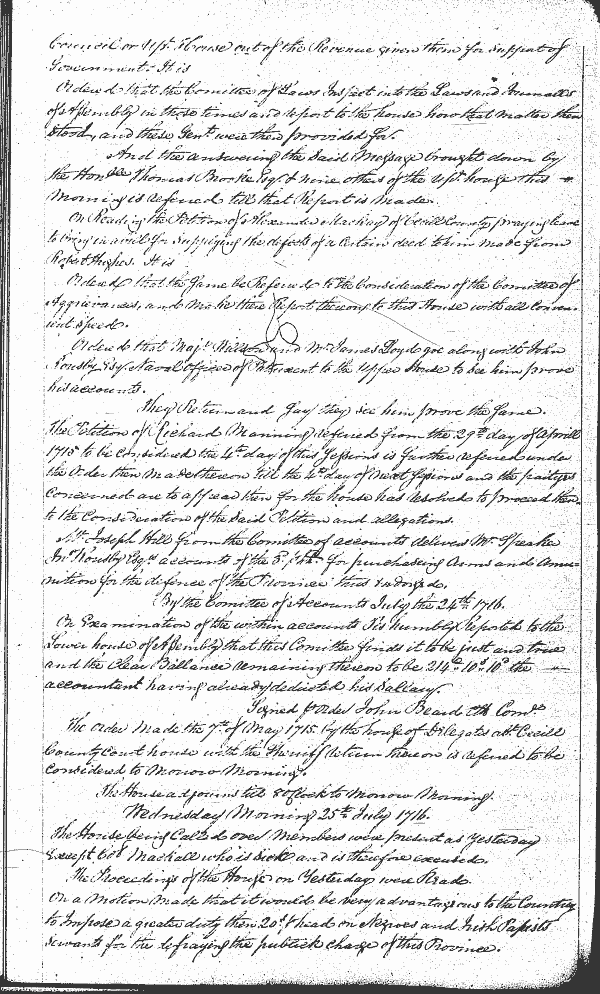 Councill or upr. House out of the Revenue given them for Support of
Government. It is
Ordered that the Comittee of Laws Inspect into the Laws and Journalls
of Assembly in those times and report to the house how that matter then
Stood, and these Gent. were then provided for.
And the answering the Said Message brought down by
the Honble Thomas Brooke Esqr. & nine others of the uppr. house this
Morning is referred till that Report is made.
On Reading the Petition of Alexander Mackey of Cecill County praying leave
to bring in a bill for Supplying the defects of a Certain deed to him made from
Robert Hughes. It is
Ordered that the Same be Referred to the Consideration of the Comittee of
Aggrievances, and make there Report thereon to this House with all Conven-
ient Speed.
Ordered that Majr. Wilson and Mr. James Lloyd goe along with John
Rousby Esq. Navall officer of Patuxent to the upper House to See him prove
his accounts.
They Return and Say they See him prove the Same.
The Petition of Richard Manning referred from the 29th day of Aprill
1715 to be Considered the 4th day of this Sessions is further referred under
the Order then made thereon till the 4th day of next Sessions and the partyes
Concerned are to appear then for the house has resolved to proceed then
to the Consideration of the Said Petition and allegations.
Mr. Joseph Hill from the Comittee of accounts delivers Mr. Speaker
Jno. Rousby Esqrs. accounts of the 3d. for purchasing Arms and Amu-
nition for the defence of the Province thus Endorsed,
By the Comittee of Accounts July the 24th 1716.
On Examination of the within accounts Tis humbly Reported to the
Lower house of Assembly that this Comittee finds it to be just and true
and the Clear Ballance remaining thereon to be 214£ 10s 10d the
accountant having already deducted his Sallary.
Signed p order John Beard Clk Com.
The Order Made the 7th of May 1715 by the house of Delegates abt. Cecill
County Court house with the Sheriffs Return thereon is referred to be
Considered to Morrow Morning.
The House adjourns till 8 oClock to Morrow Morning.
Wednesday Morning 25th July 1716.
The House being Called over Members were present as Yesterday
Except Coll Mackall who is Sick and is therefore excused.
The Proceedings of the House on Yesterday were Read.
On a Motion made that it would be very advantageous to the Country
to Impose a greater duty then 20s. p head on Negroes and Irish Papists
Servants for the defraying the publick charge of this Province.